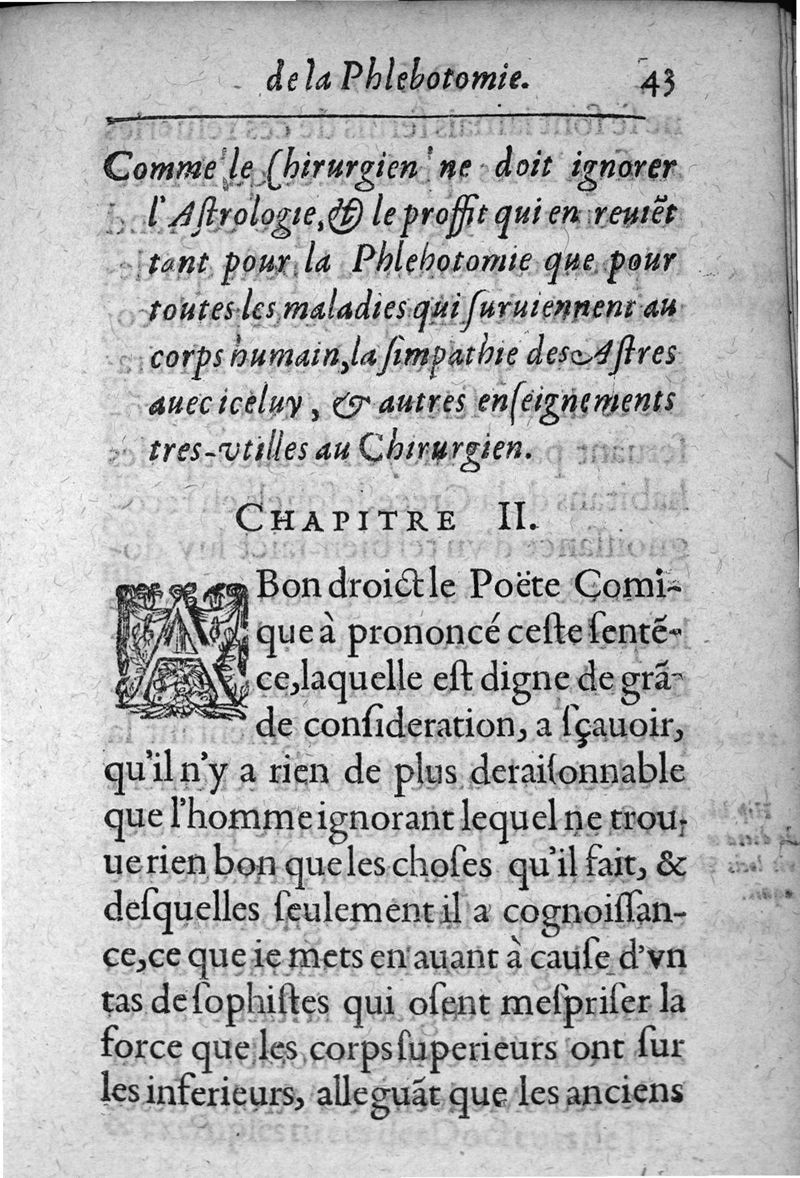 de la Phlebotomie. 43
Comme le Chirurgien ne doit ignorer
l'Aſtrologie, & le proffit qui en reuiẽt
tant pour la Phlebotomie que pour
toutes les maladies qui ſuruiennent au
corps humain, la ſimpathie des Aſtres
auec iceluy, & autres enſeignements
tres-vtilles au Chirurgien.
CHAPITRE II.
A Bon droict le Poëte Comi-
que à prononcé ceſte ſentẽ-
ce, laquelle eſt digne de grã-
de conſideration, a ſçauoir,
qu'il n'y a rien de plus deraiſonnable
que l'homme ignorant lequel ne trou-
ue rien bon que les choſes qu'il fait, &
deſquelles ſeulement il a cognoiſſan-
ce, ce que ie mets en auant à cauſe d'vn
tas de ſophiſtes qui oſent meſpriſer la
force que les corps ſuperieurs ont ſur
les inferieurs, alleguãt que les anciens